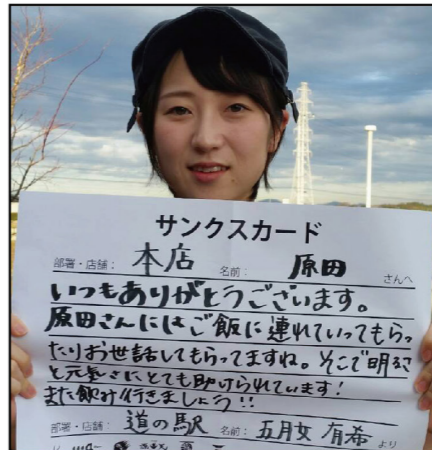 サンクスカード
部署・店舗： 本店 名前： 原田 さんへ
いつもありがとうございます。
原田さんにはご飯に連れていってもらっ
たりお世話してもらってますね。そこで明るさ
と元気さにとても助けられています！
また飲み行きましょう!!
部署・店舗： 道の駅 名前： 五月女 有希 より